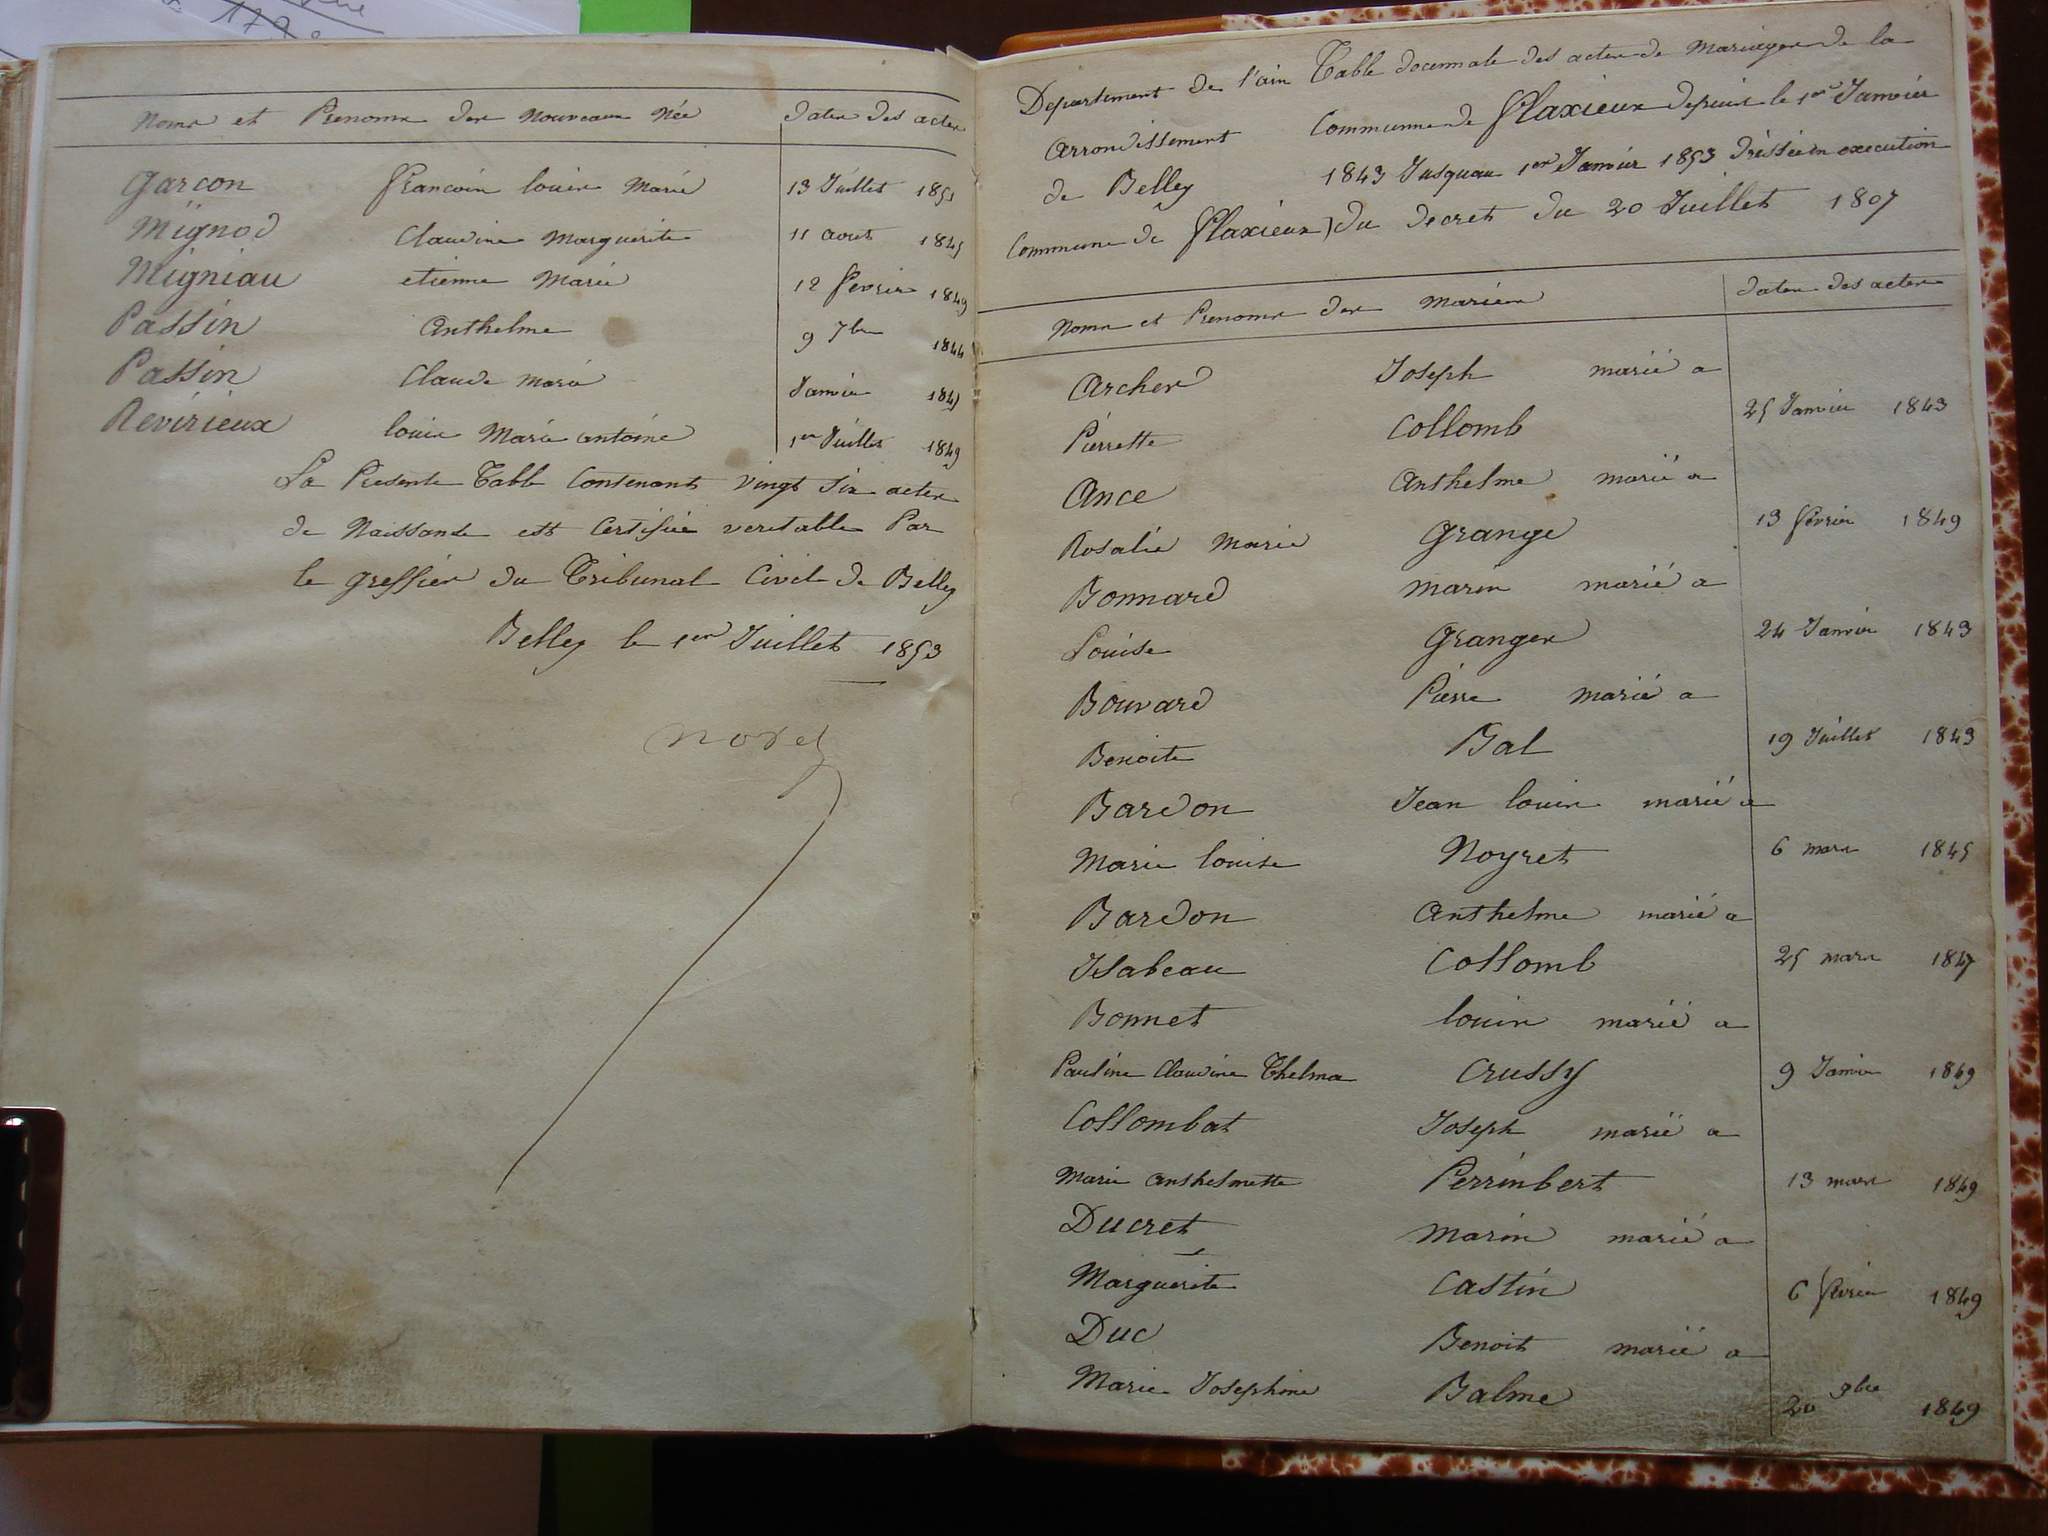 Noms et Prenoms des Nouveaux Née dates des actes
Garcon francois louis Marie 13 Juillet 1851
Mignod Claudine Marguerite 11 aout 1845
Migniau etienne Marie 12 fevrier 1849
Passin Anthelme 9 7bre 1844
Passin Claude Marie Janvier
Revirieux louis Marie antoine 1er Juillet 1849
La Presente Table Contenant Vingt Six actes
de Naissance est Certifiée veritable Par
le greffier du Tribunal Civil de Belley
Belley le 1er Juillet 1853
Departement de l'ain Table decennale des actes de Mariages de la
Arrondissement Commune de flaxieux depuis le 1er Janvier
de Belley 1843 Jusquau 1er Janvier 1853 dréssée en execution
Commune de flaxieux) du decret du 20 Juillet 1807
Noms et Prenoms des Mariés dates des actes
Archer Joseph marié a
Pierrette Collomb 25 Janvier 1843
Ance Anthelme marié a
Rosalie Marie Grange 13 fevrier 1849
Bonnard Marin marié a
Louise Granger 24 Janvier 1843
Bouvard Pierre marié a
Benoite Bal 19 Juillet 1843
Bardon Jean louis marié a
Marie louise Noyret 6 mars 1845
Bardon Anthelme marié a
Isabeau Collomb 25 mars 1847
Bonnet louis marié a
Pauline Claudine Thelma Crussy 9 Janvier 1849
Collombat Joseph marié a
Marie anthelmette Perrinbert 13 mars 1849
Ducret Marin marié a
Marguerite Castin 6 fevrier 1849
Duc Benoit marié a
Marie Josephine Balme 20 9bre 1849